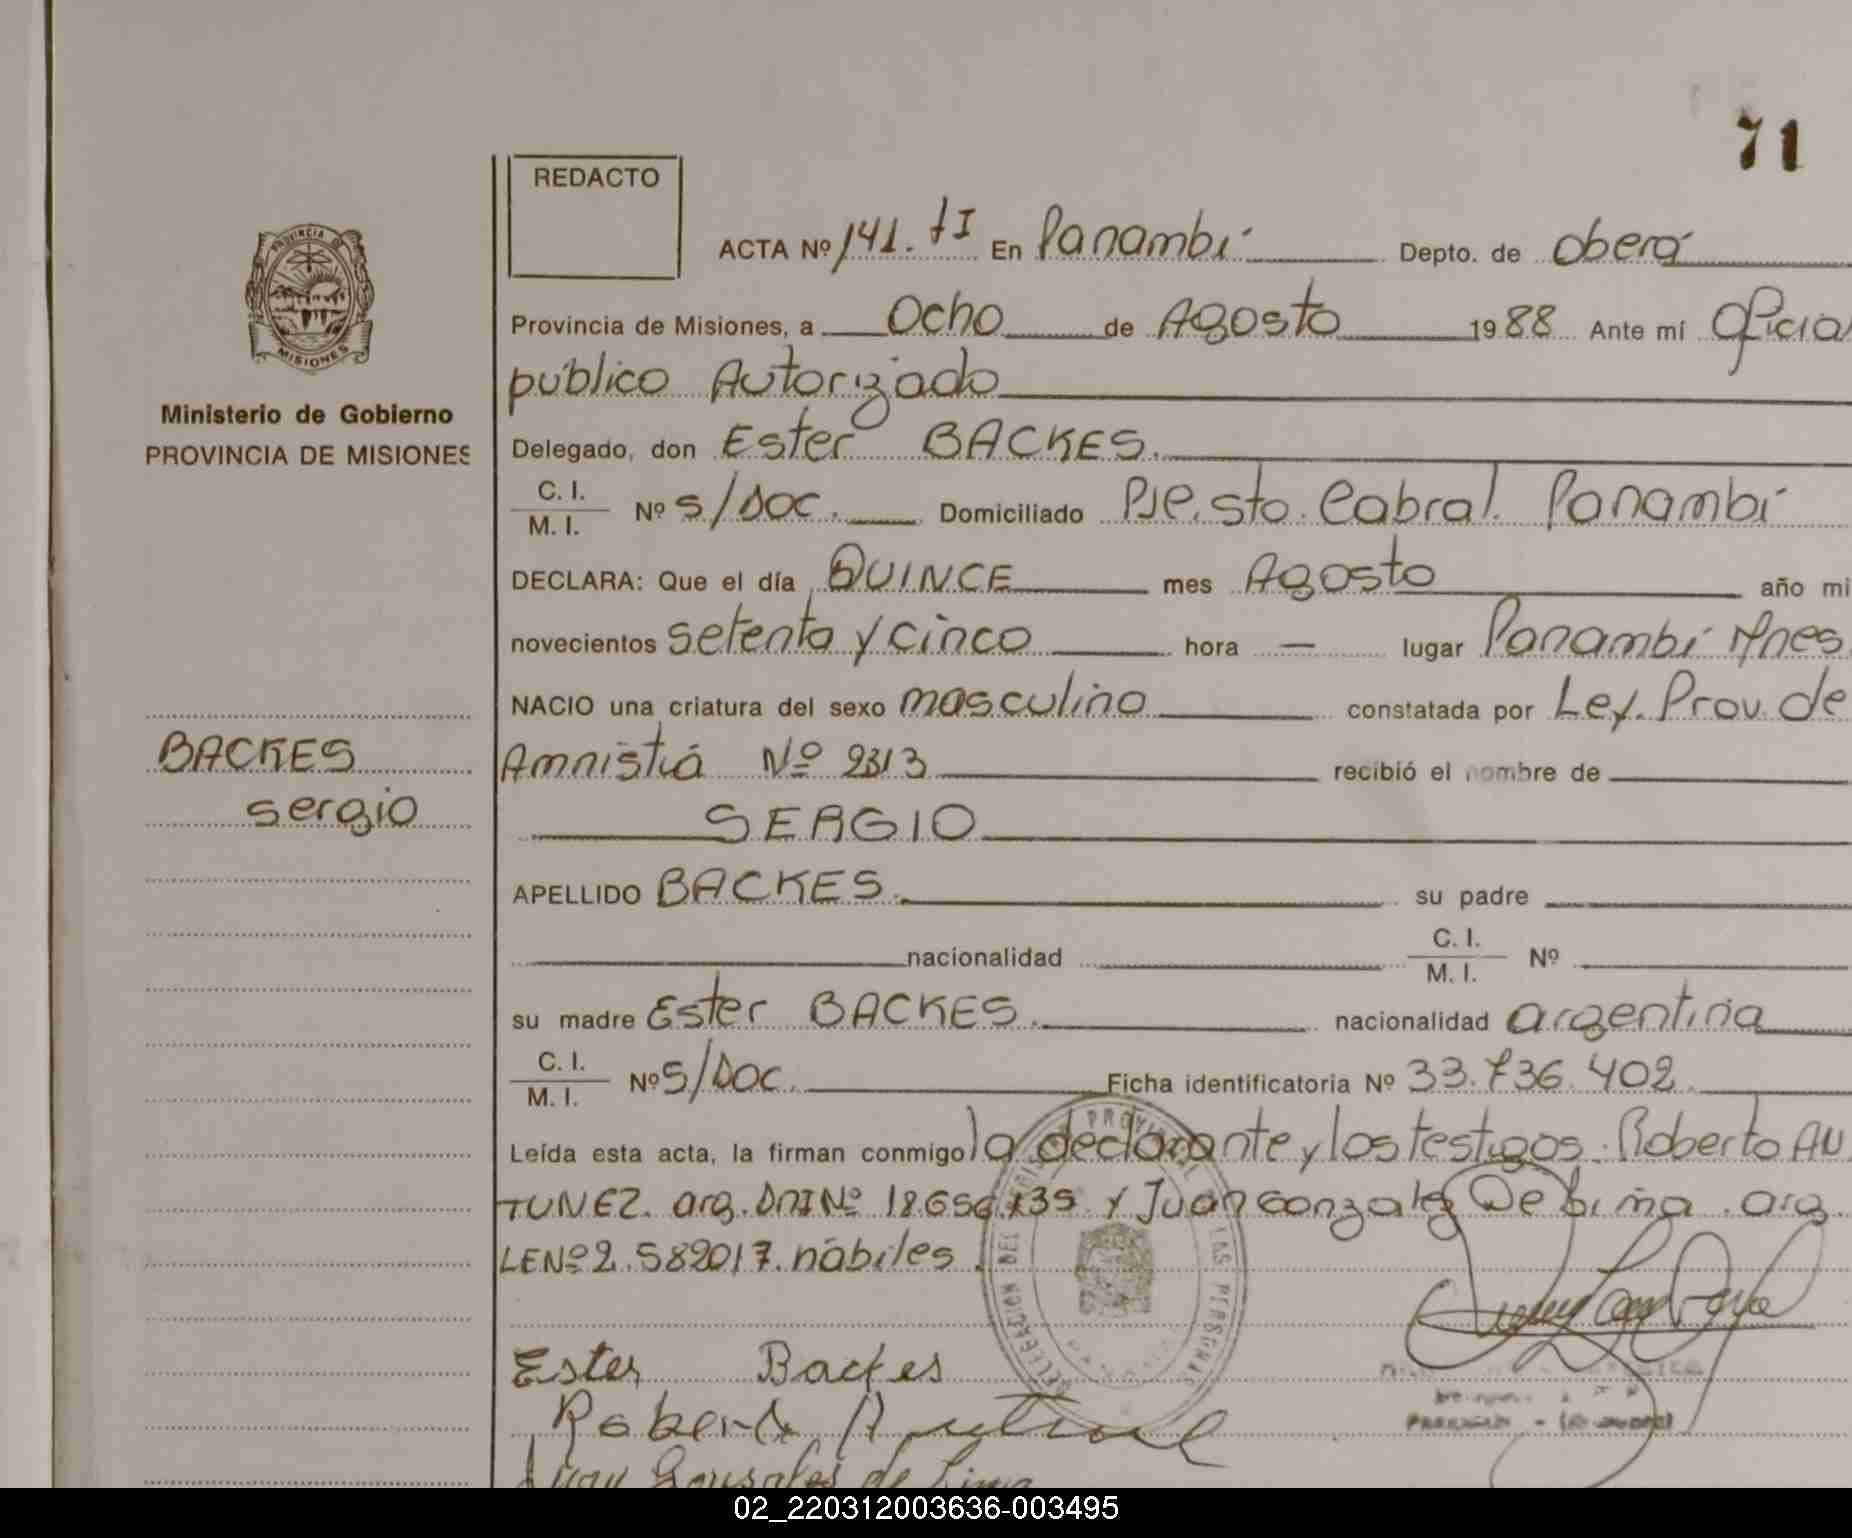 71
REDACTO
ACTA Nº 141. tI En Panambí Depto. de Oberá
PROVINCIA DE
MISIONES
Provincia de Misiones, a Ocho de Agosto 1988 Ante mí Oficial
público Autorizado
Ministerio de Gobierno
PROVINCIA DE MISIONES
Delegado, don Ester BACKES.
C. I.
M. I. Nº S/DOC. Domiciliado Pje. Sto. Cabral. Panambí
DECLARA: Que el día QUINCE mes Agosto año mi
novecientos setenta y cinco hora — lugar Panambí Mnes.
NACIO una criatura del sexo masculino constatada por Ley. Prov. de
BACKES
Sergio
Amnistiá Nº 2313 recibió el nombre de
SERGIO
APELLIDO BACKES. su padre
nacionalidad C. I.
M. I. Nº
su madre Ester BACKES. nacionalidad argentina
C. I.
M. I. Nº S/DOC. Ficha identificatoria Nº 33.736.402
Leída esta acta, la firman conmigo la declarante y los testigos. Roberto AN
TUNEZ. arg. DNI Nº y Juan Gonzalez De Lima. arg.
LE Nº 2.582017. hábiles.
DELEGACION DEL PROVINCIAL LAS PERSONAS
Ester Backes
Roberto
Juan Gonsales de Lima
02_220312003636-003495